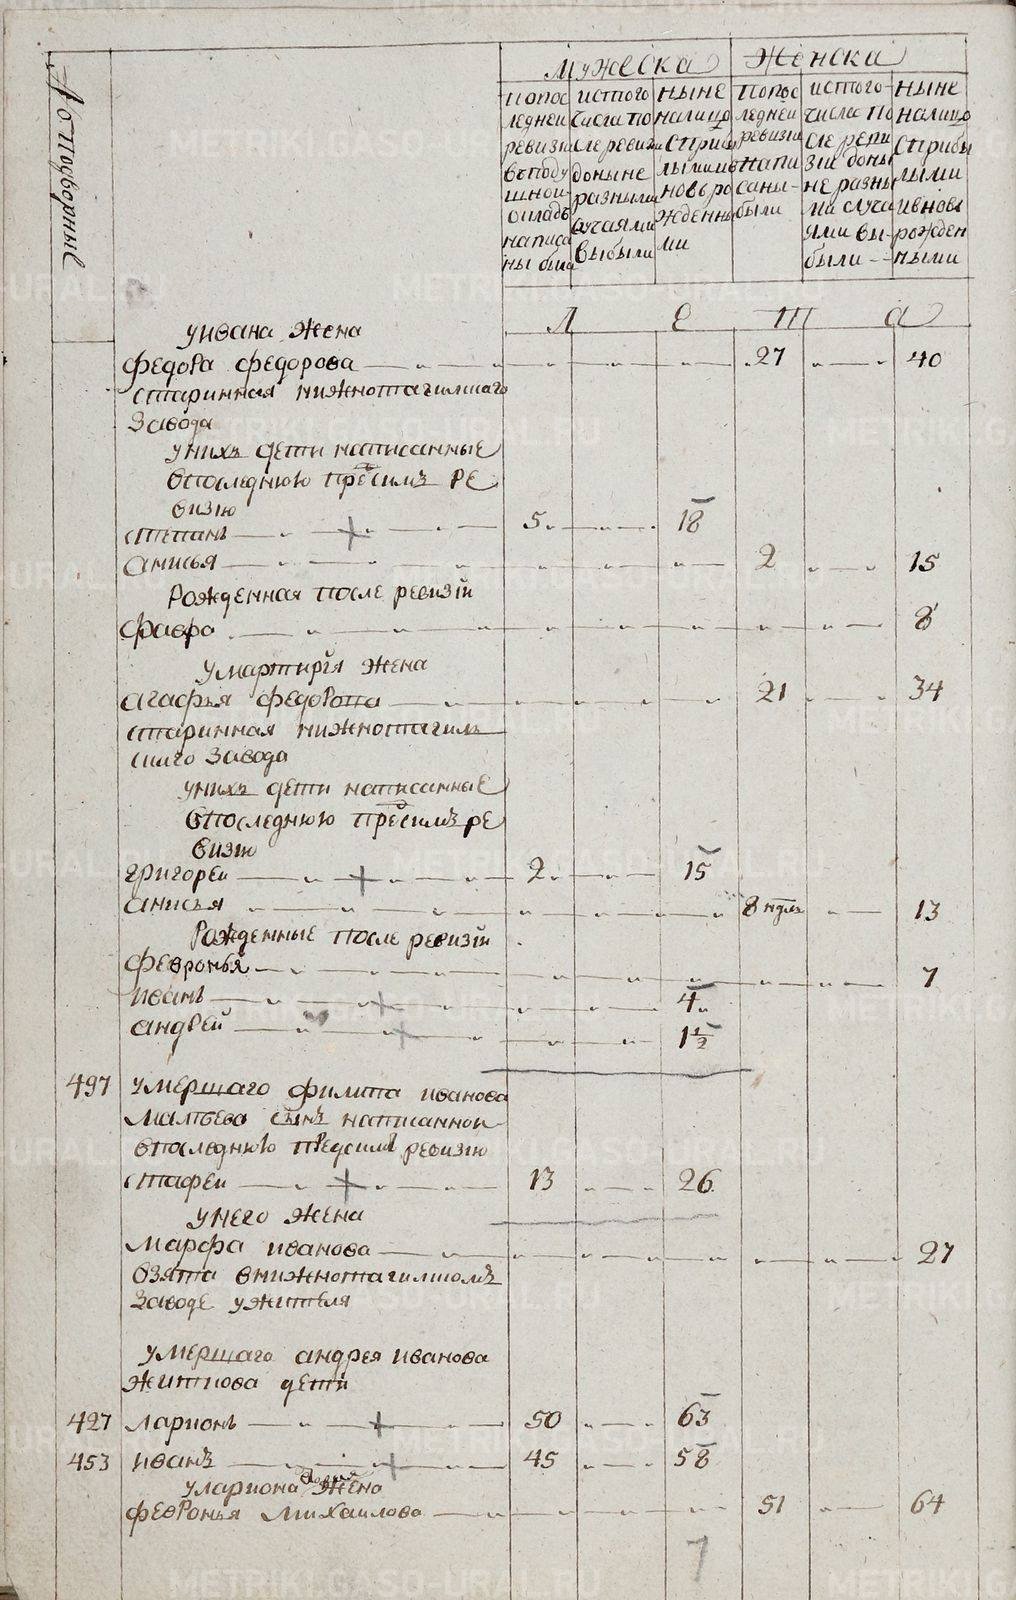 Мужеска Женска
Попос ледней ревизіи въ поду шной окладъ написа ны были
ис того числа по сле ревизіи до ныне разными случаями выбыли
ныне налицо с прибы лыми и новь ро жденны ми
По пос ледней ревизіи напи саны были
ис того числа по сле реви зіи до ны не разны ми случа ями вы были
ныне налицо с прибы лыми и новь рожден ными
Подворныя
Л Е Т А
у ивана жена
федора федорова 27 40
старинная нижнотагилшаго
Завода
у нихъ дети написанные
в последнюю пред симъ ре
визію
степанъ 5 18
анисья 2 15
Рожденная после ревизіи
фавра 8
у мартирія жена
агафья федорова 21 34
старинная нижнотагил
скаго завода
у нихъ дети написанные
в последнюю пред симъ ре
визію
григорей 2 15
анисья 8 ндль 13
Рожденные после ревизіи
февронья 7
иванъ 4
андрей 1½
497 умершаго филипа иванова
малгева сынъ написанной
в последнюю пред симъ ревизию
стафей 13 26
у него жена
марфа иванова 27
взята в нижнотагилшомъ
заводе у жителя
умершаго андрея иванова
житнова дети
427 ларионъ 50 63
453 иванъ 45 58
у лариона жена
февронья михаилова 51 64
7
METRIKI.GASO-URAL.RU